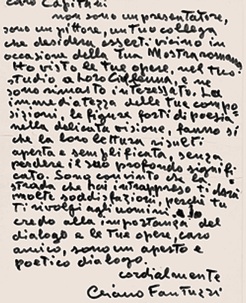 Caro Capitani
non sono un presentatore,
sono un pittore, un tuo collega
che desidera esserti vicino in
occasione della Tua Mostra romana
Ho visto le Tue opere, nel tuo
studio a Loro Ciuffenna, e ne
sono rimasto interessato. La
immediatezza delle tue compo-
sizioni, le figure forti di poesia
nella delicata visione, fanno sì
che la loro lettura risulti
aperta e semplificata, senza
perdere il suo profondo signifi-
cato. Sono convinto che la
strada che hai intrapreso ti darà
molte soddisfazioni, perchè tu
ti rivolgi agli uomini e io
credo alla importanza del
dialogo e le Tue opere, caro
amico, sono un aperto e
poetico dialogo.
cordialmente
Fantuzzi